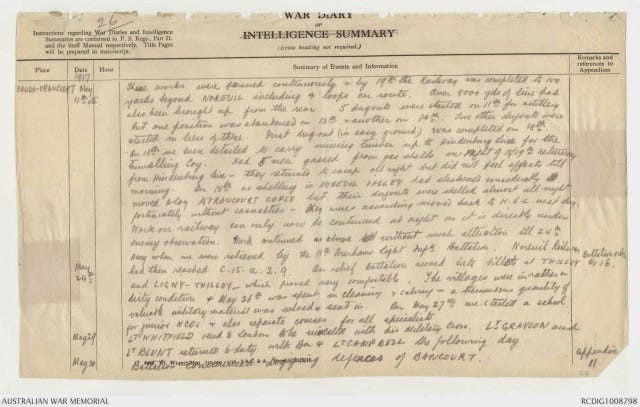 26
WAR DIARY
or
INTELLIGENCE SUMMARY
(Erase heading not required.)
Instructions regarding War Diaries and Intelligence
Summaries are contained in F. S. Regs., Part II.
and the Staff Manual respectively. Title Pages
will be prepared in manuscript.
Place Date Hour Summary of Events and Information Remarks and references to Appendices
1917
May
11th etc
These works were pursued continuously & by 19th the Railway was completed to 100
yards beyond NOREUIL including 4 loops en route. Over 8000 yds of line had
also been brought up from the rear. 5 dugouts were started on 11th for artillery
but one position was abandoned on 13th & another on 14th. Two other dugouts were
started in lieu of these. First dugout (in easy ground) was completed on 16th
on 18th we were detailed to carry timber up to Hindenburg line for the
Tunnelling Coy. Had 5 men gassed from gas shells on night of 18/19th returning
from Hindenburg line - they returned to camp all right but did not feel effects till
morning. On 18th as shelling in NOREUIL VALLEY had slackened considerably
moved a Coy VRAUCOURT COPSE but their dugouts were shelled almost all night
fortunately without casualties - they were accordingly moved back to H.Q. next day.
Work on railway can only now be continued at night as it is directly under
enemy observation. Work continued as above without much alteration till 24th
May when we were relieved by the 11th Durham Light Infy Battalion. Noreuil Railway
had then reached C.15.a.2.9. On relief battalion moved into billets at THILLOY
and LIGNY-THILLOY, which proved very comfortable. The villages were in rather a
dirty condition & May 26th was spent in cleaning & salving - a tremendous quantity of
valuable military material was salved & sent in. On May 27th we started a school
for junior NCOs & also separate courses for all specialists.
Lt WHITFIELD went to London to be invested with his Military Cross. Lt GRAYSON and
Lt BLUNT returned to duty with Bn & Lt CAMPBELL the following day
Battalion commenced digging defences of BANCOURT.
May
24th
May 29
May 30
Battalion order
No 16.
appendix
11
AUSTRALIAN WAR MEMORIAL
RCDIG1008798